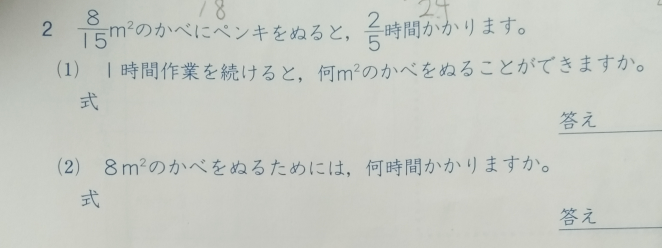 18 24
2 8/15m²のかべにペンキをぬると，2/5時間かかります。
(1) 1時間作業を続けると，何m²のかべをぬることができますか。
式
答え
(2) 8m²のかべをぬるためには，何時間かかりますか。
式
答え